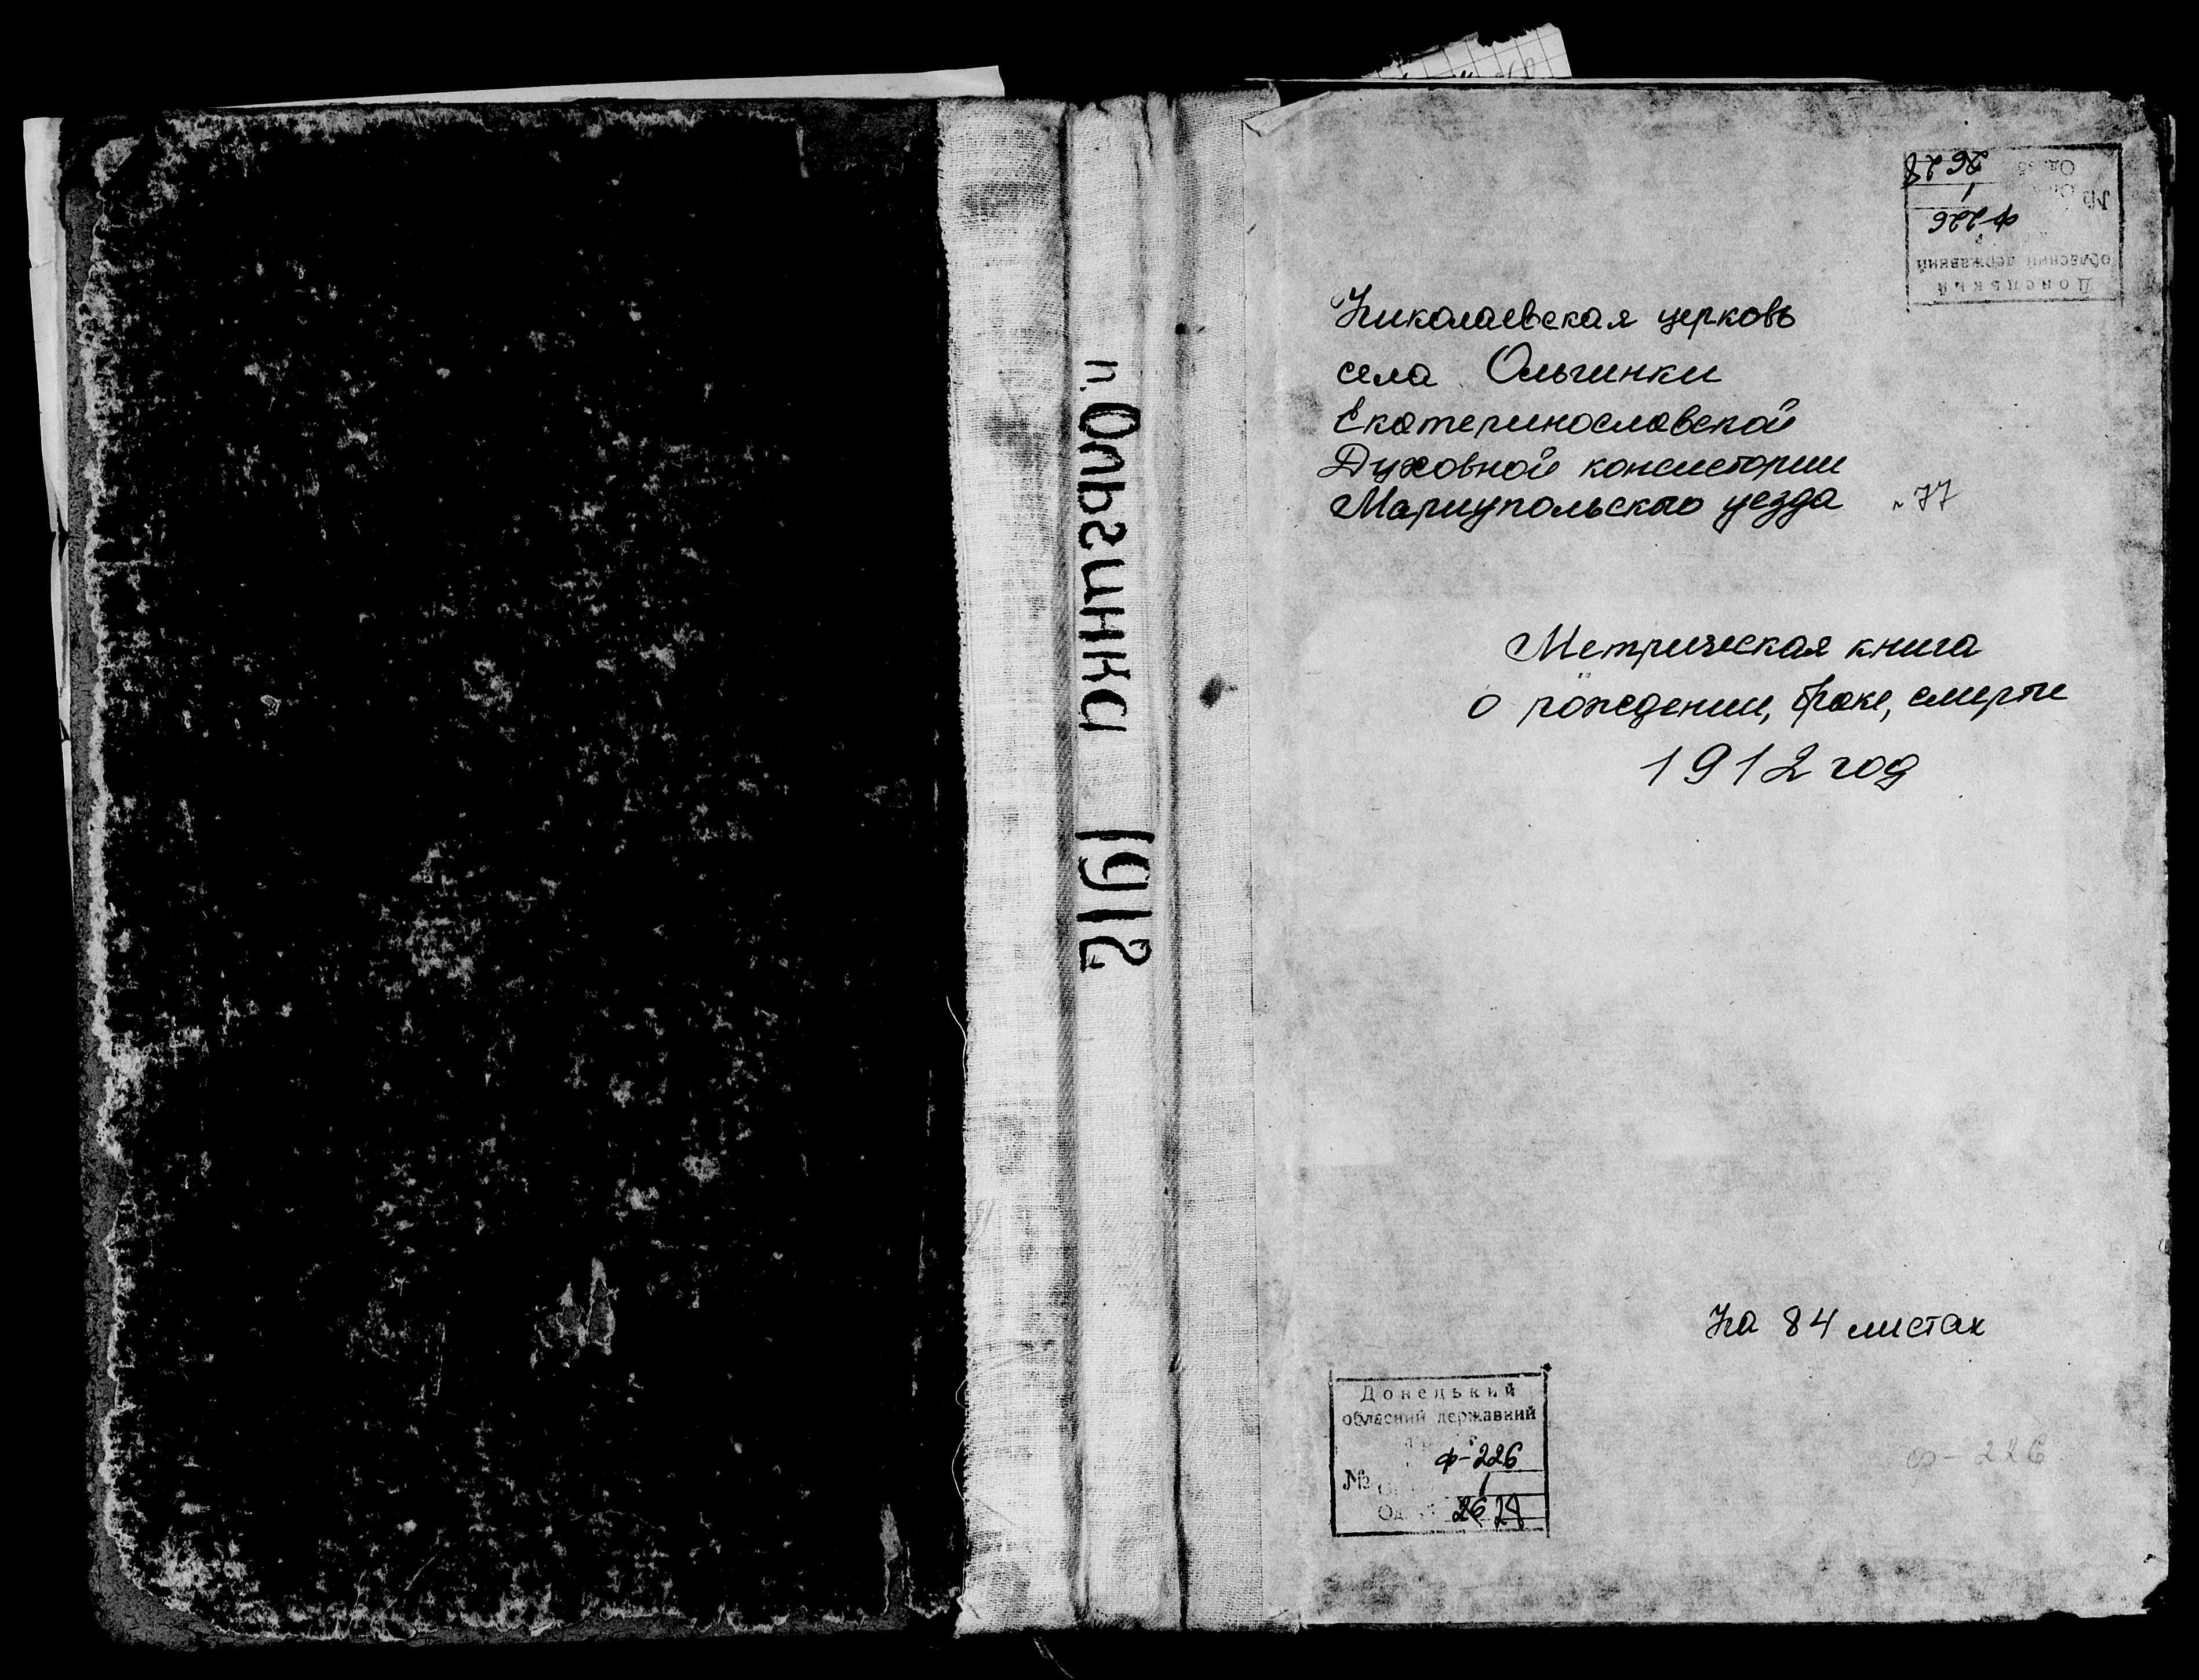 п. Ольгинка 1912
Николаевская церковь
села Ольгинки
Екатеринославской
Духовной консистории
Мариупольского уезда
77
Метрическая книга
о рождении, браке, смерти
1912 год
На 84 листах
Донецький
обласний державний
ф-226
№
1
Од. 2628
ф-226
Донецький
обласний державний
ф-226
№
1
Од. 2628